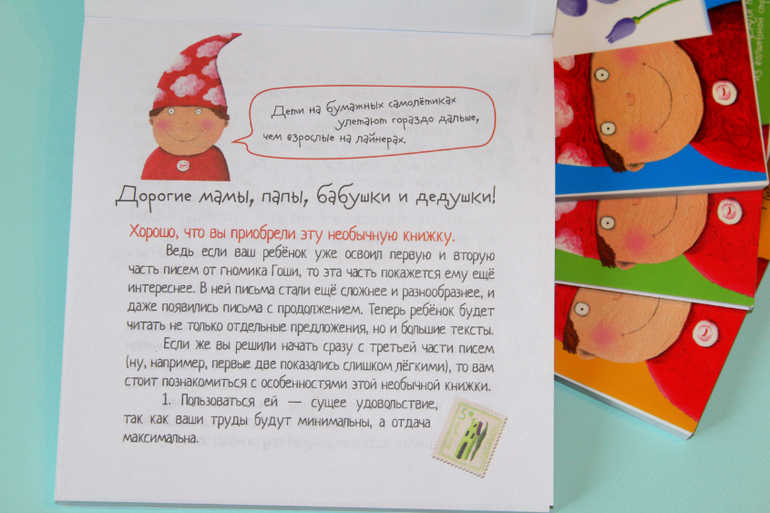 Дети на бумажных самолётиках
улетают гораздо дальше,
чем взрослые на лайнерах.
Дорогие мамы, папы, бабушки и дедушки!
Хорошо, что вы приобрели эту необычную книжку.
Ведь если ваш ребёнок уже освоил первую и вторую
часть писем от гномика Гоши, то эта часть покажется ему ещё
интереснее. В ней письма стали ещё сложнее и разнообразнее, и
даже появились письма с продолжением. Теперь ребёнок будет
читать не только отдельные предложения, но и большие тексты.
Если же вы решили начать сразу с третьей части писем
(ну, например, первые две показались слишком лёгкими), то вам
стоит познакомиться с особенностями этой необычной книжки.
1. Пользоваться ей — сущее удовольствие,
так как ваши труды будут минимальны, а отдача
максимальна.